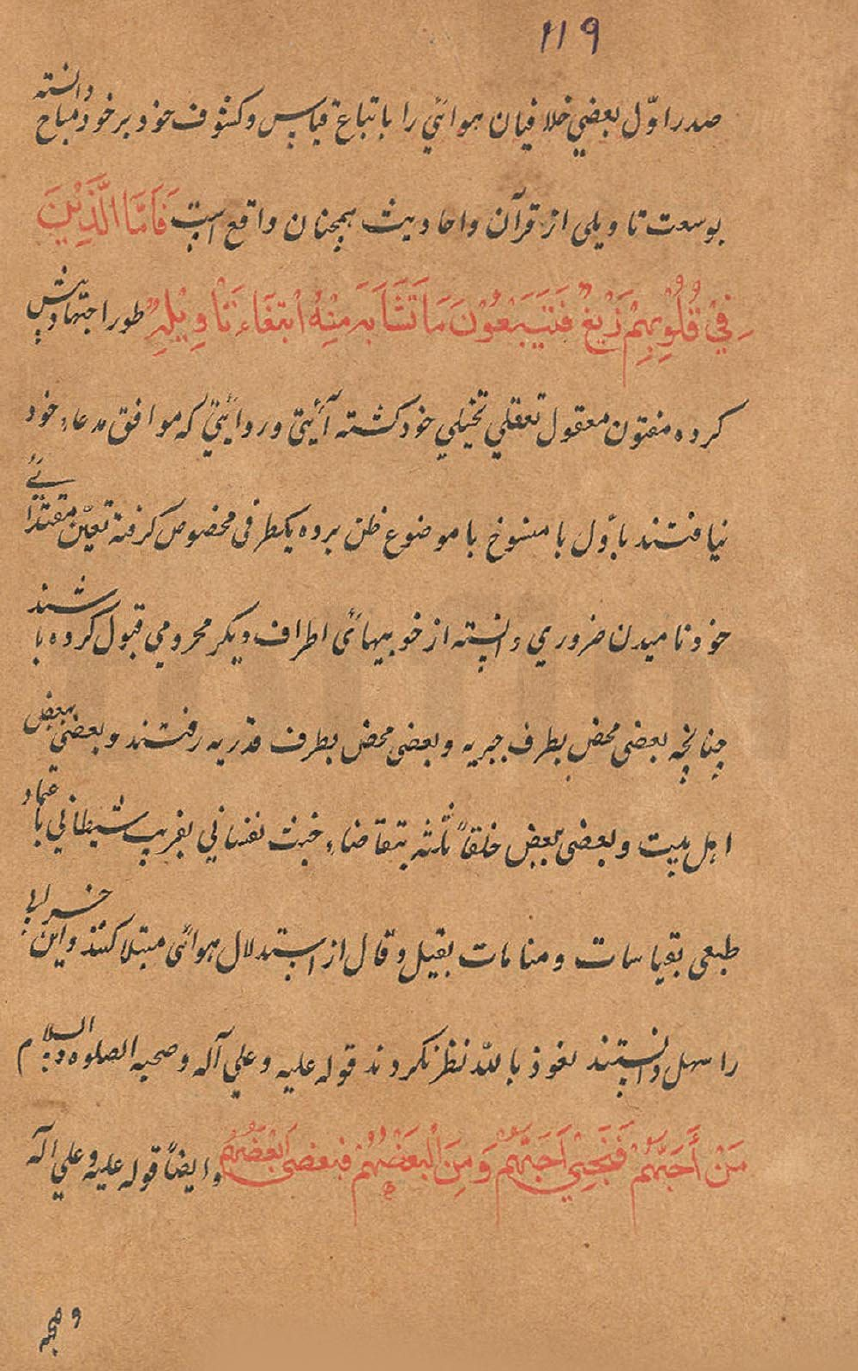 ۱۱۹
صدر اوّل بعضي خلافيان هوائي را باتباع قياس و كشوف خود بر خود مباح دانسته
بوسعت تاويلى از قرآن واحاديث همچنان واقع است فَاَمَّا الَّذِيْنَ
فِيْ قُلُوْبِهِمْ زَيْغٌ فَتَيَّبِعُوْنَ مَا تَشَابَهَ مِنْهُ ابْتِغَاءَ تَاْوِيْلِهِ طور اجتهاد پيش
كرده مفتون معقول تعقلي تخيلي خود كشته آيتى و روايتى كه موافق مدعاء خود
نيافتند باوّل يا منسوخ يا موضوع ظن برده يكطرفى مخصوص كرفته تعيّن مقتدائے
خود ناميدن ضروري دانسته از خوبيهائ اطراف ديكر محرومي قبول كرده باشند
چنانچه بعضى محض بطرف جبريه و بعضى محض بطرف قدريه رفتند و بعضى ببعض
اهل بيت و بعضى ببعض خلفاً ثلثه بتقاضاء خبث نفساني بفريب شيطاني باعتماد
طبعى بقياسات و منامات بقيل و قال از استدلال هوائى مبتلا كشتند و اين
را سهل دانستند نعوذ بالله نظر نكردند قوله عليه و علي آله و صحبه الصلوه و السلام
مَنْ أَحَبَّهُمْ فَبِحُبِّيْ اَحَبَّهُمْ وَمَنْ اَبْغَضَهُمْ فببغضى اَبْغَضَهُمْ وايضاً قوله عليه و علي آله
و صحبه